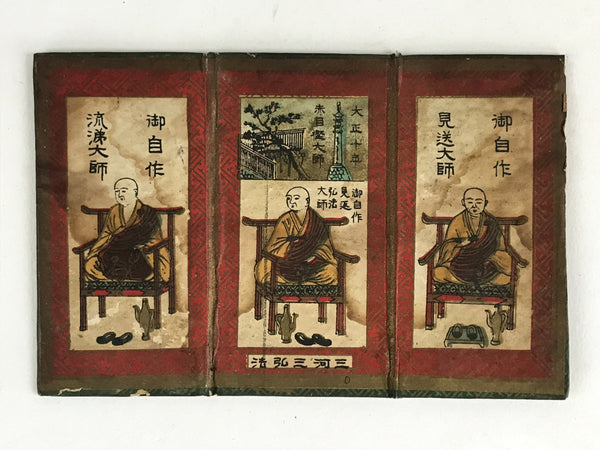 御自作
見送大師
大正十年
赤目樫大師
御自作
見返
弘法
大師
御自作
流涕大師
三河三弘法